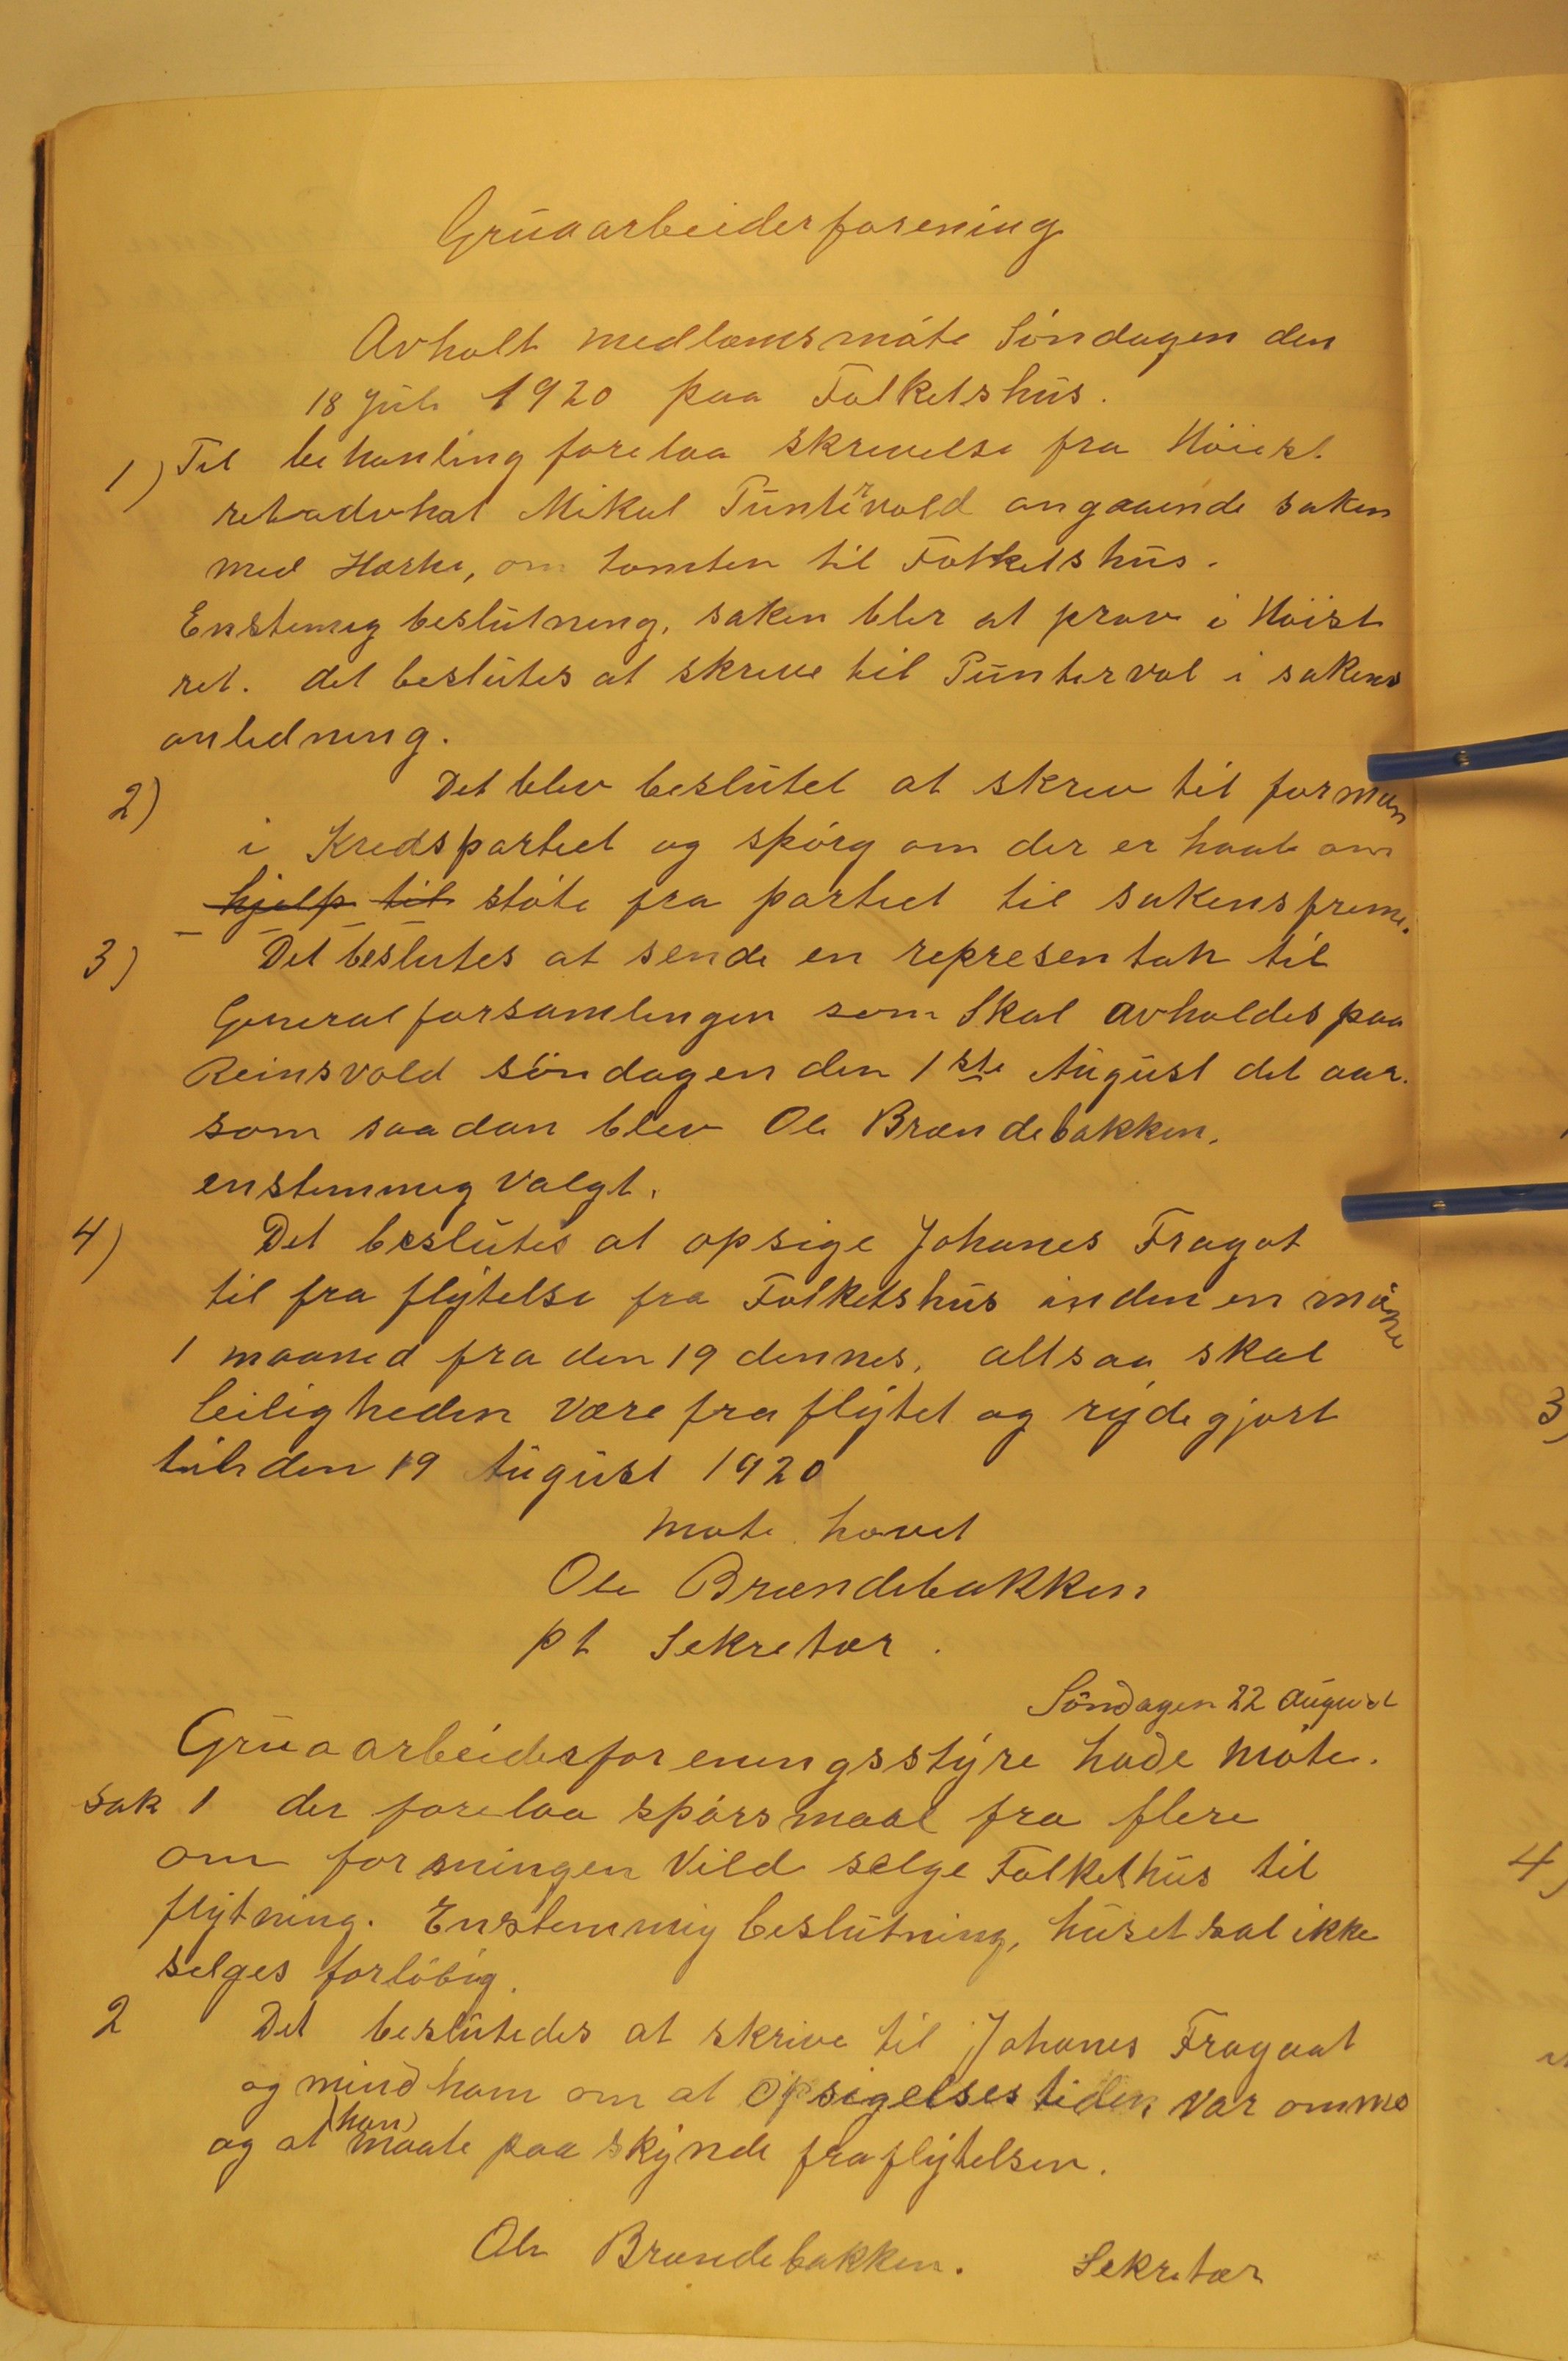 Grúaarbeiderforening
Avholt medlæmsmöte Söndagen den
18 Juli 1920 paa Folketshús.
1) Til behanling forelaa skrevelse fra Höiest
retsadvkat Mikal Púntervold angaaende saken
med Harke, om tomten til Folketshús.
Enstemig beslútning, saken blir at prøv i Höist
ret. det beslútes at skreve til Púntervol i sakens
anledning.
2) Det blev beslútet at skrev til forman
i Kredspartiet og spörg om der er haab om
hjelp til stöte fra partiet til sakens freme.
3) Det beslutes at sende en representan til
Generalforsamlingen som Skal avholdes paa
Reinsvold söndagen den 1ste Aúgúst det aar.
som saadan blev Ole Brændebakken.
enstemmig valgt.
4) Det beslútes at opsige Johanes Fragot
til fra flytelse fra Folketshús inden en måne
1 maaned fra den 19 dennes, altsaa skal
leiligheden være fra flytet og rydegjort
til den 19 Aúgúst 1920
møte hævet
Ole Brændebakken
pt Sekretær.
Söndagen 22 aúgust
Grúaarbeidesforeningsstyre hade möte.
sak 1 der forelaa spörsmaal fra flere
om forningen vild selge Folkethús til
flytning. Enstemmig beslútning, húset skal ikke
selges forlöbig.
2 Det beslútedes at skrive til Johanes Fragaat
og mind ham om at Opsigelsestiden var omme
og at (han) maate paaskynde fraflytelsen.
Ole Brændebakken. Sekretær
3)
4)